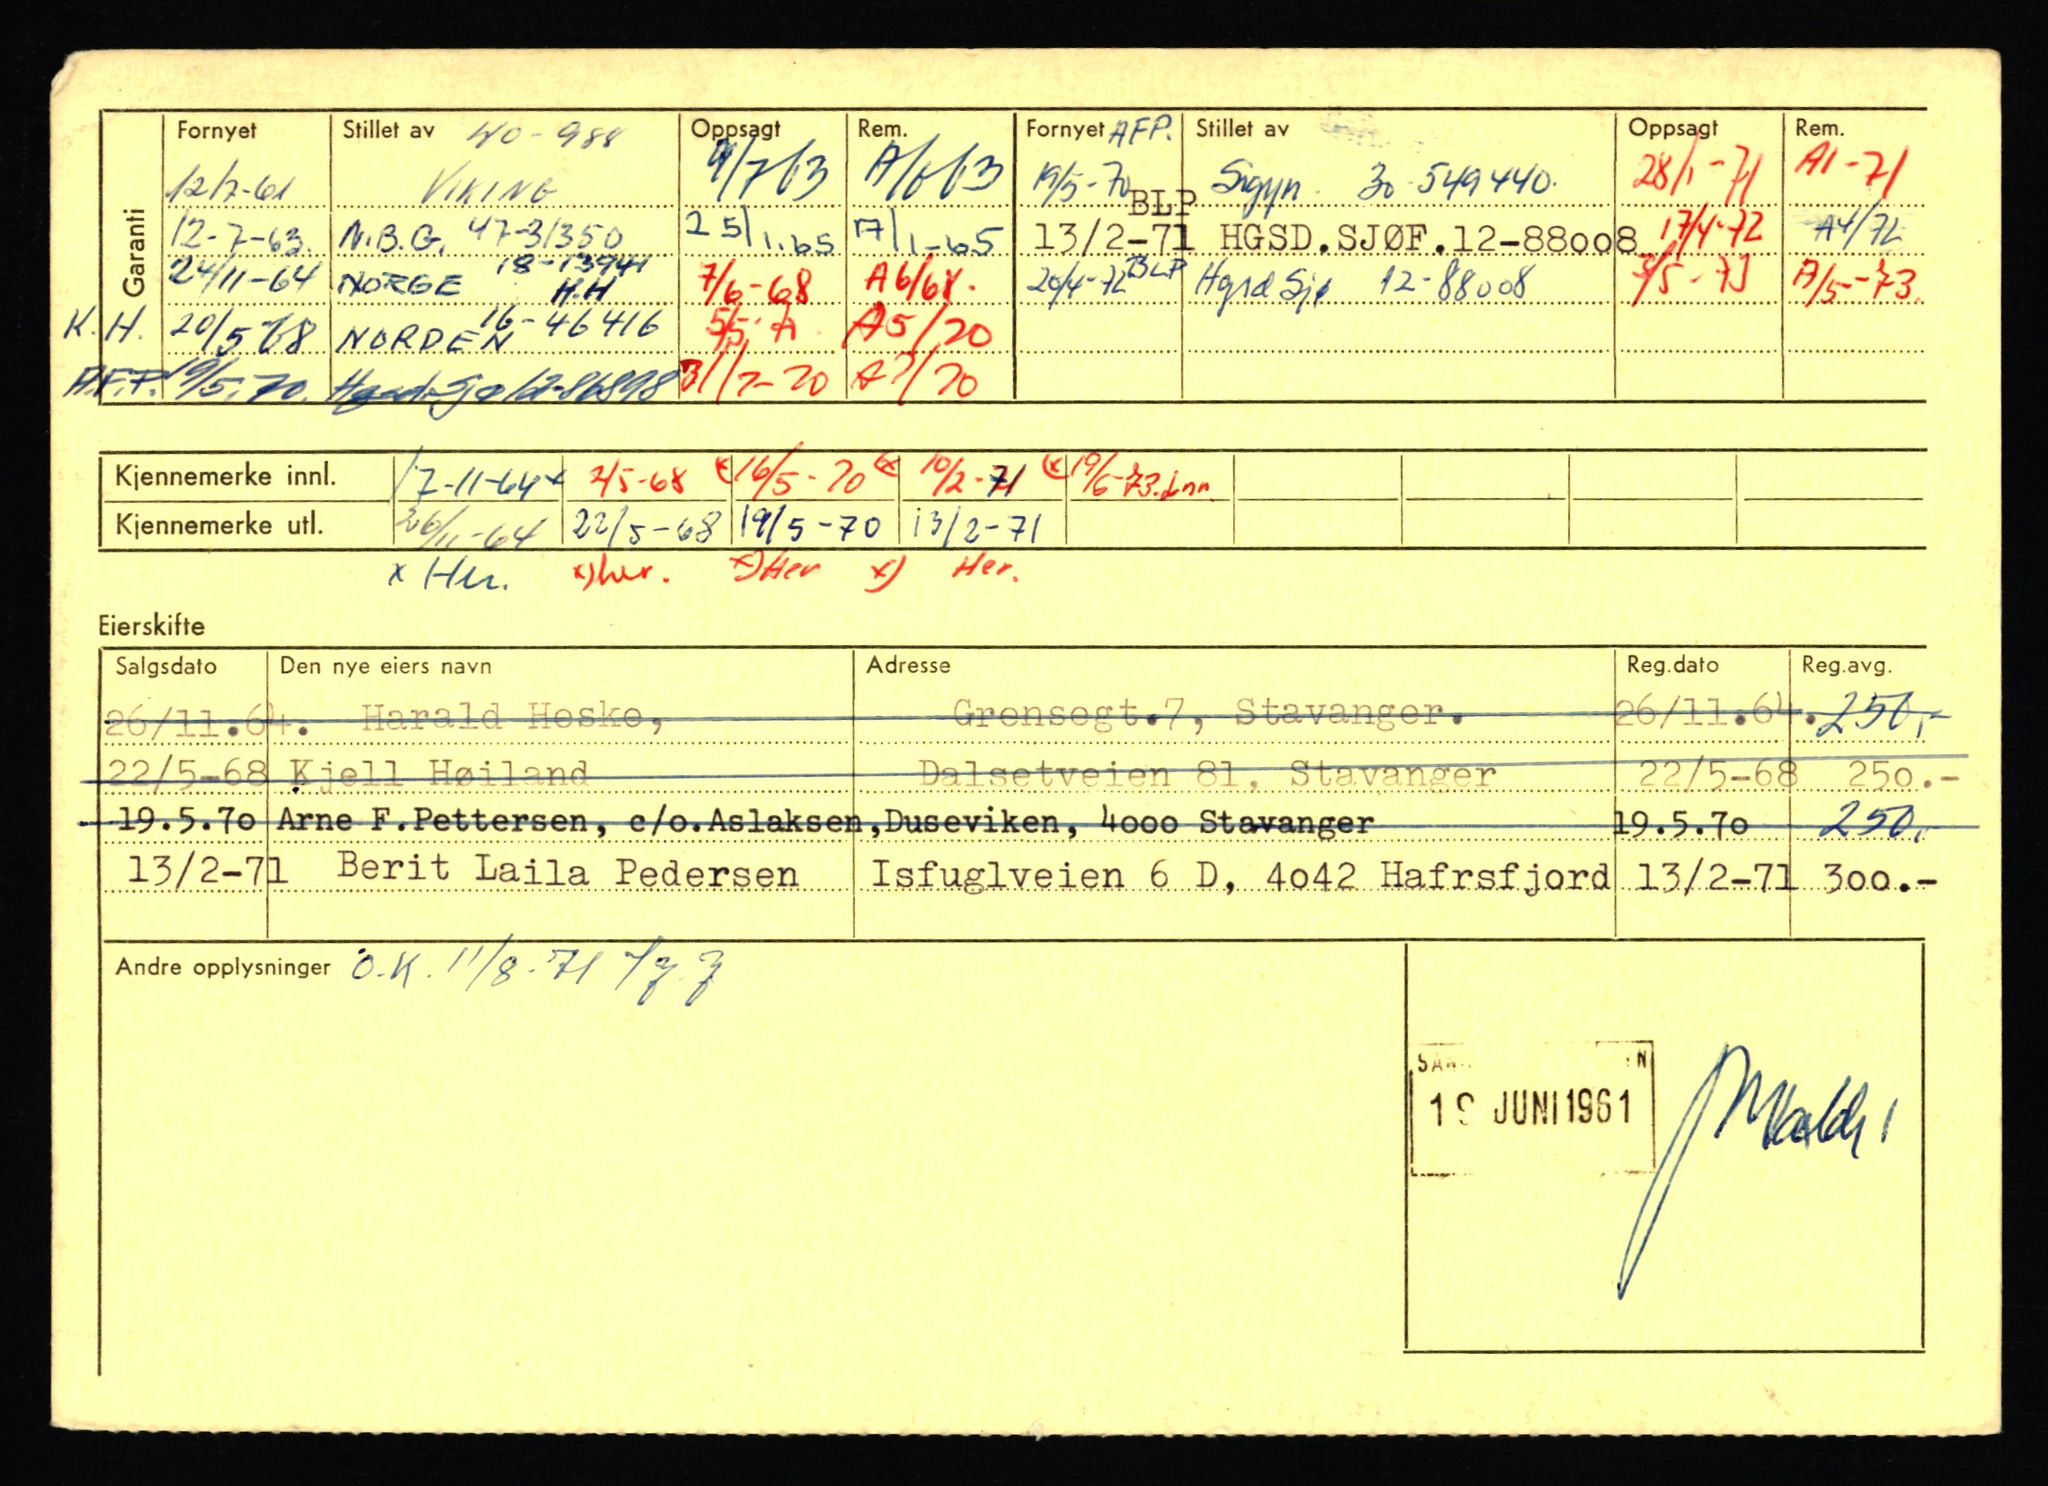 Garanti
Fornyet Stillet av 40-988 Oppsagt Rem. Fornyet AFP. Stillet av Oppsagt Rem.
12/7-61 VIKING 4/7 63 A/6 63 19/5-70 Sigyn 30-549440. 28/1-71 A1-71
12-7-63. N.B.G. 47-31350 25/1.65 A/1-65 13/2-71 BLP HGSD.SJØF.12-88008 17/4-72 A4/72
24/11-64 NORGE 18-13941 H.H 7/6-68 A6/68. 20/4-72 BLP Hgsd Sjø 12-88008 5-73 A/5-73.
K.H. 20/5 68 NORDEN 16-46416 5/5 A A5/70
A.F.P. 19/5.70. Hgsd. Sjø 12-86898 31/7-70 A7/70
Kjennemerke innl. 17-11-64 x 2/5-68 (x 16/5-70 (x 10/2-71 (x 19/6-73. Inn.
Kjennemerke utl. 26/11-64 22/5-68 19/5-70 13/2-71
x Her. x) her. x) Her x) Her.
Eierskifte
Salgsdato Den nye eiers navn Adresse Reg.dato Reg.avg.
26/11.64. Harald Heske, Grensegt.7, Stavanger. 26/11.64. 250.-
22/5-68 Kjell Høiland Dalsetveien 81, Stavanger 22/5-68 250.-
19.5.70 Arne F.Pettersen, c/o.Aslaksen,Duseviken, 4000 Stavanger 19.5.70 250.-
13/2-71 Berit Laila Pedersen Isfuglveien 6 D, 4042 Hafrsfjord 13/2-71 300.-
Andre opplysninger O.K. 11/8-71
19 JUNI 1961